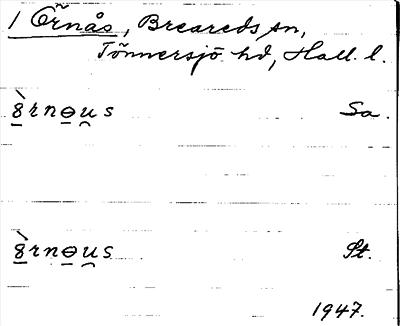 1 Örnås, Breareds sn,
Tönnersjö hd, Hall. l.
ȣ̀rnɵu̯s Sa.
ȣ̀rnɵu̯s St.
1947.